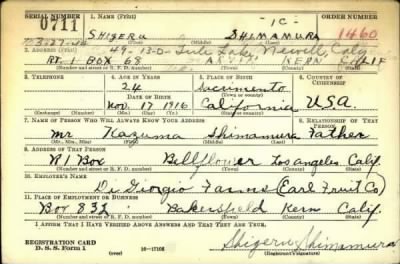 SERIAL NUMBER 1. NAME (Print) ORDER NUMBER
0711 SHIGERU SHIMAMURA 1C 1460
(First) (Middle) (Last)
49-13-D- Tule Lake, Newell, Calif
RT. 1 BOX 68 ARVIN KERN CALIF
(Number and street or R. F. D. number) (Town) (County) (State)
3. TELEPHONE 4. AGE IN YEARS 5. PLACE OF BIRTH 6. COUNTRY OF CITIZENSHIP
24 Sacramento
DATE OF BIRTH (Town or county)
Nov. 17 1916 California U.S.A.
(Exchange) (Number) (Mo.) (Day) (Yr.) (State or country)
7. NAME OF PERSON WHO WILL ALWAYS KNOW YOUR ADDRESS 8. RELATIONSHIP OF THAT PERSON
Mr Kazuma Shimamura Father
(Mr., Mrs., Miss) (First) (Middle) (Last)
9. ADDRESS OF THAT PERSON
R1 Box Bellflower Los Angeles Calif.
(Number and street or R. F. D. number) (Town) (County) (State)
10. EMPLOYER'S NAME
Di Giorgio Farms (Earl Fruit Co)
11. PLACE OF EMPLOYMENT OR BUSINESS
Box 832 Bakersfield Kern Calif.
(Number and street or R. F. D. number) (Town) (County) (State)
I AFFIRM THAT I HAVE VERIFIED ABOVE ANSWERS AND THAT THEY ARE TRUE.
REGISTRATION CARD
D. S. S. Form 1 16-17105 Shigeru Shimamura
(Registrant's signature)